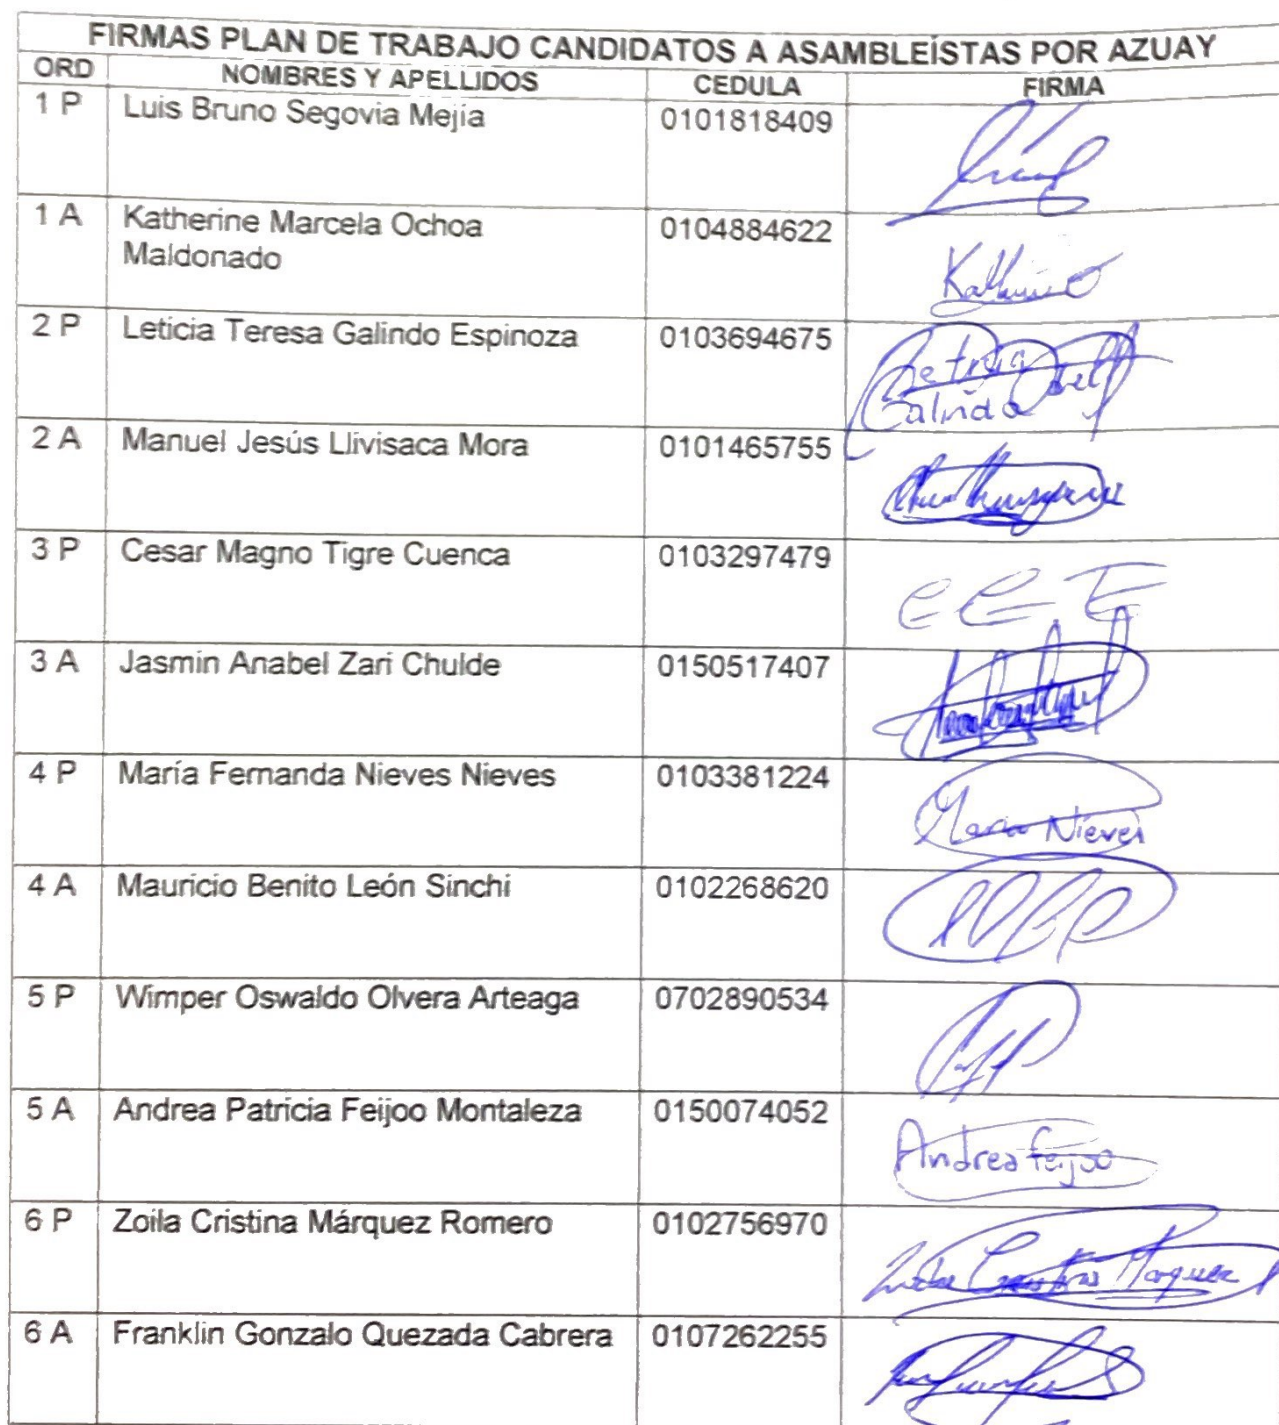 FIRMAS PLAN DE TRABAJO CANDIDATOS A ASAMBLEÍSTAS POR AZUAY
ORD NOMBRES Y APELLIDOS CEDULA FIRMA
1 P Luis Bruno Segovia Mejía 0101818409
1 A Katherine Marcela Ochoa 0104884622
Maldonado
2 P Leticia Teresa Galindo Espinoza 0103694675
Galindo
2 A Manuel Jesús Llivisaca Mora 0101465755
3 P Cesar Magno Tigre Cuenca 0103297479
3 A Jasmin Anabel Zari Chulde 0150517407
4 P María Fernanda Nieves Nieves 0103381224
Maria Nieves
4 A Mauricio Benito León Sinchi 0102268620
5 P Wimper Oswaldo Olvera Arteaga 0702890534
5 A Andrea Patricia Feijoo Montaleza 0150074052
Andrea feijoo
6 P Zoila Cristina Márquez Romero 0102756970
6 A Franklin Gonzalo Quezada Cabrera 0107262255